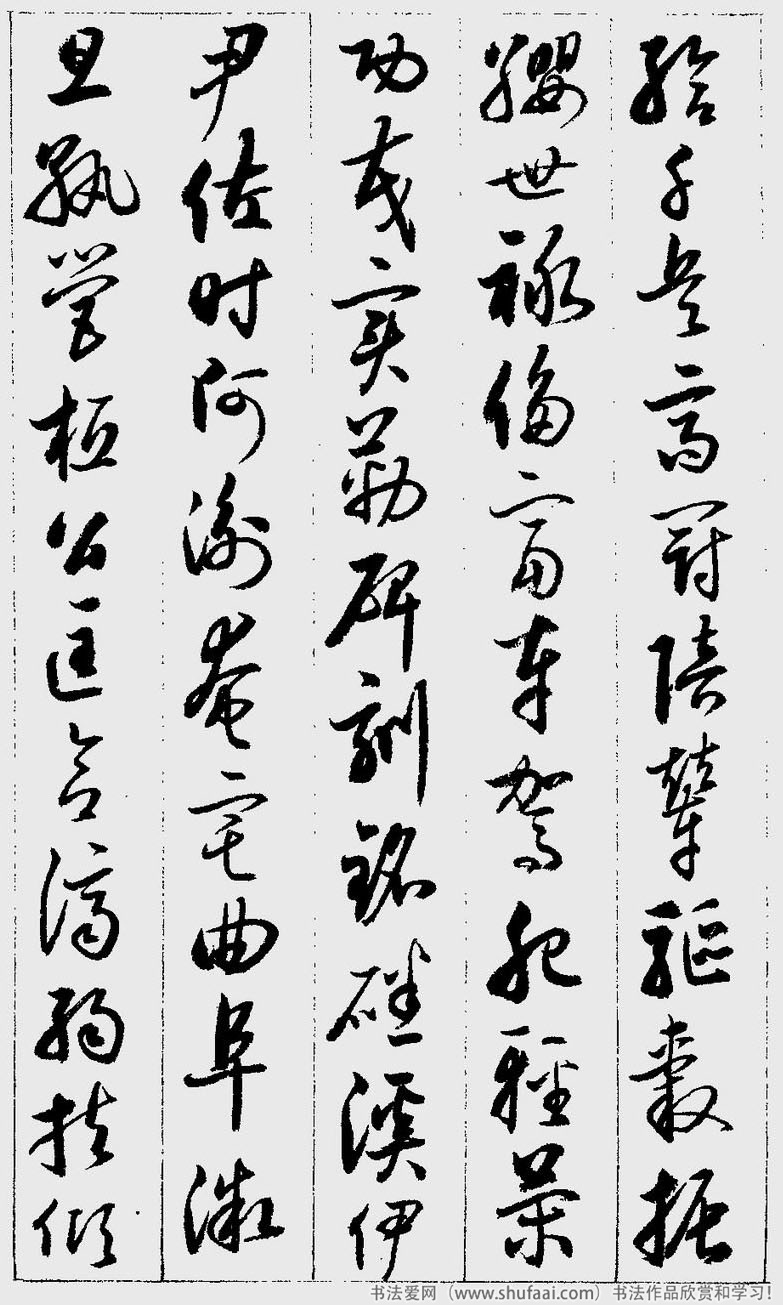 給千兵高冠陪輦驅轂振
纓世祿侈富車駕肥輕策
功茂實勒碑刻銘磻溪伊
尹佐時阿衡奄宅曲阜微
旦孰營桓公匡合濟弱扶傾
书法爱网（www.shufaai.com）书法作品欣赏和学习！